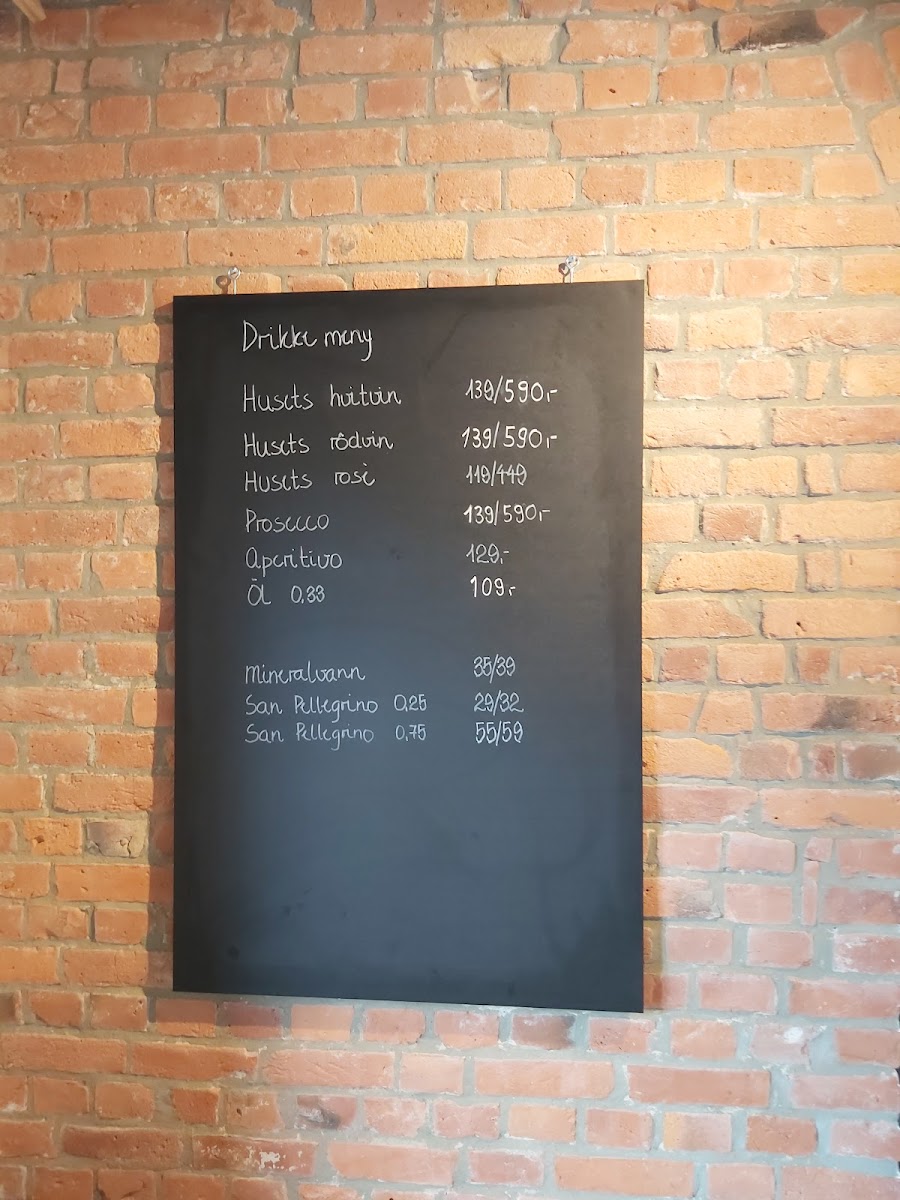 Drikke meny
Husets hvitvin 139/590,-
Husets rôdvin 139/590,-
Husets rosè 119/449
Prosecco 139/590,-
Aperitivo 129,-
Öl 0,33 109,-
Mineralvann 35/39
San Pellegrino 0,25 29/32
San Pellegrino 0,75 55/59